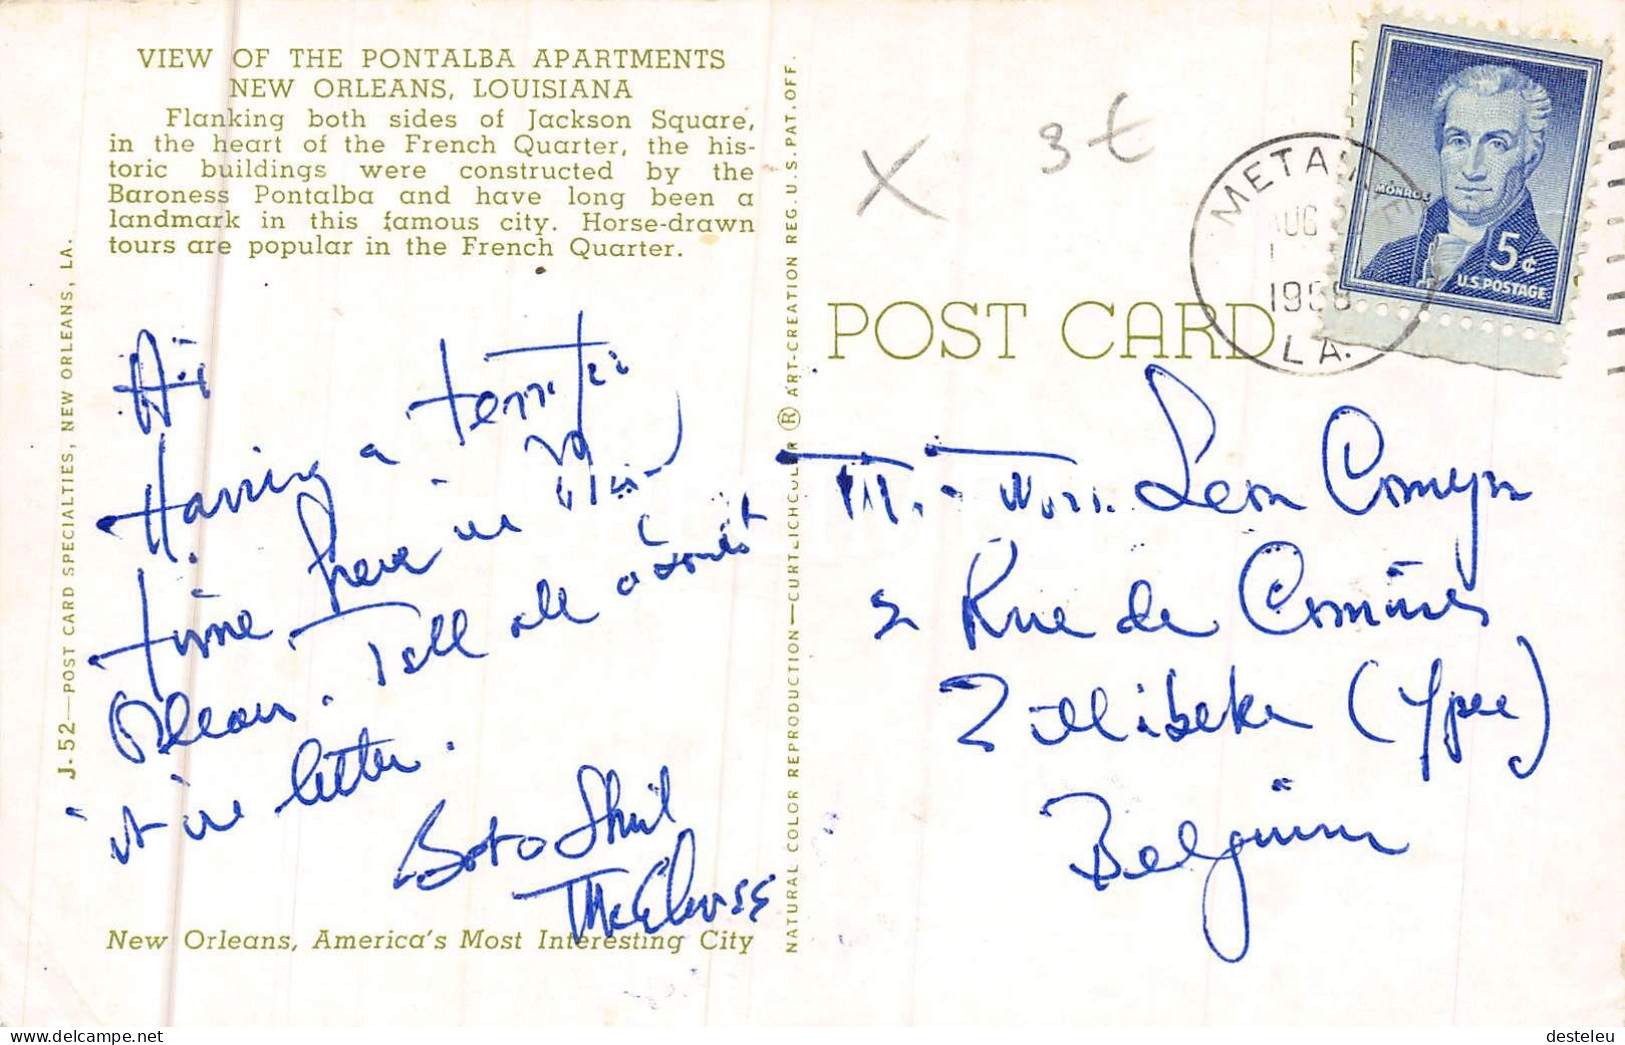 VIEW OF THE PONTALBA APARTMENTS
NEW ORLEANS, LOUISIANA
Flanking both sides of Jackson Square,
in the heart of the French Quarter, the his-
toric buildings were constructed by the
Baroness Pontalba and have long been a
landmark in this famous city. Horse-drawn
tours are popular in the French Quarter.
J-52—POST CARD SPECIALTIES, NEW ORLEANS, LA.
Hi
Having a terrific
time here in New
Orleans. Tell all about
it in letter.
Bob & Shirl
McElwee
New Orleans, America's Most Interesting City
NATURAL COLOR REPRODUCTION—CURTEICHCOLOR ® ART-CREATION REG. U.S. PAT. OFF.
X 3t
POST CARD
METAIRIE
AUG
LA.
MONROE
5¢
U.S. POSTAGE
Mr. & Mrs. Leon Comeyn
2 Rue de Comines
Zillibeke (Ypre)
Belgium
delcampe.net
desteleu